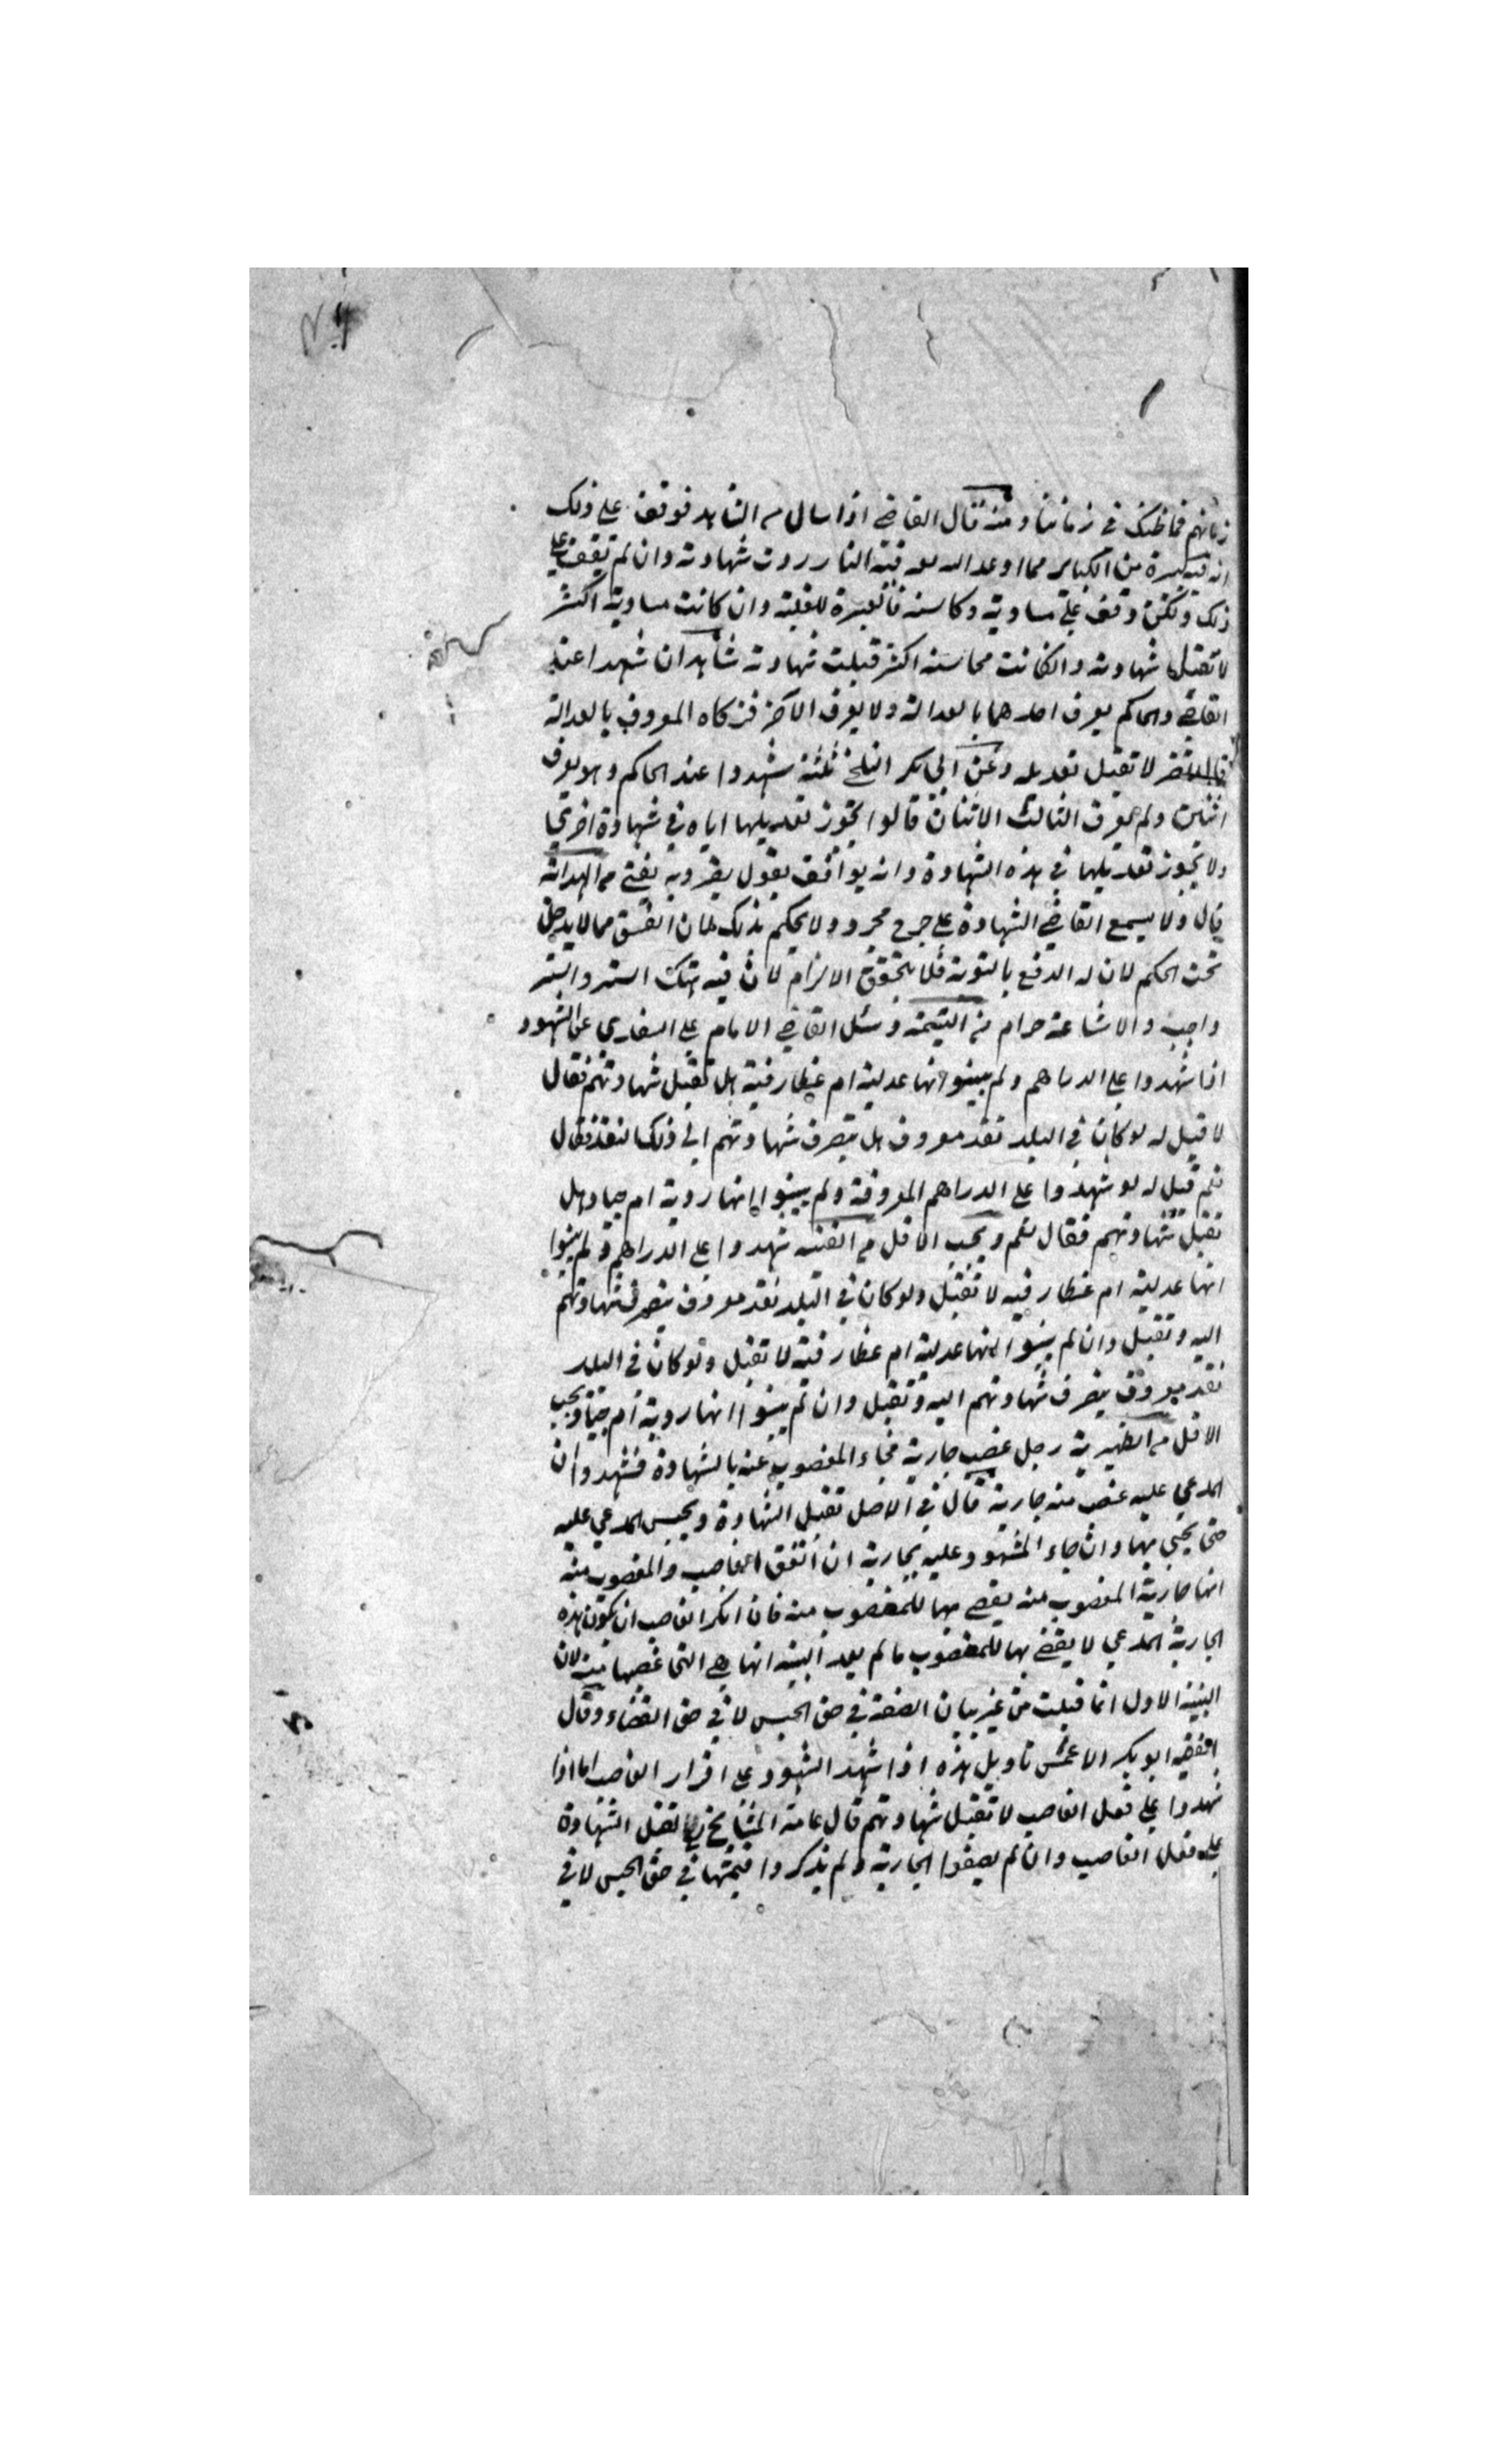 زمانهم فما ظنك في زماننا ومنه قال القاضي اذا سال من الشاهد فوقف على ذلك
انه فيه كبيرة من الكباير مما اوعد الله فيه النار ردت شهادته وان لم يقف على
ذلك ولكن وقف على مساويه ومحاسنه فالعبرة للغلبة وان كانت مساويه اكثر
لا تقبل شهادته وان كانت محاسنه اكثر قبلت شهادته شاهدان شهدا عند
القاضي والحاكم يعرف احدهما بالعدالة ولا يعرف الآخر فزكاه المعروف بالعدالة
لا تقبل تعديله وعن ابي بكر البلخي ثلثة شهدوا عند الحاكم وهو يعرف
اثنين ولم يعرف الثالث الاثنان قالوا يجوز تعديلهما اياه في شهادة اخرى
ولا يجوز تعديلهما في هذه الشهادة وانه يوافق بقول وبه يفتى من الهداية
قال ولا يسمع القاضي الشهادة على جرح مجرد ولا يحكم بذلك لان الفسق مما لا يدخل
تحت الحكم لان له الدفع بالتوبة فلا يتحقق الالزام لان فيه هتك الستر والستر
واجب والاشاعة حرام من اليتيمة وسئل القاضي الامام على السغدي عن الشهود
اذا شهدوا على الدراهم ولم يبينوا انها عدلية ام غطارفية هل تقبل شهادتهم فقال
لا قيل له لو كان في البلد نقد معروف هل ينصرف شهادتهم الى ذلك النقد فقال
نعم قيل له لو شهدوا على الدراهم المعروفة ولم يبينوا انها ردية ام جياد هل
تقبل شهادتهم فقال نعم ويجب الاقل من القنية شهدوا على الدراهم ولم يبينوا
انها عدلية ام غطارفية لا تقبل ولو كان في البلد نقد معروف ينصرف شهادتهم
اليه وتقبل وان لم يبينوا انها عدلية ام غطارفية لا تقبل ولو كان في البلد
نقد معروف ينصرف شهادتهم اليه وتقبل وان لم يبينوا انها ردية ام جياد ويجب
الاقل من الظهيرية رجل غصب جارية فجاء المغصوب عنه بالشهادة فشهدوا ان
المدعي عليه غصب منه جارية قال في الاصل تقبل الشهادة ويحبس المدعي عليه
حتى يجئ بها وان جاء المشهود عليه بجارية ان اتفق الغاصب والمغصوب منه
انها جارية المغصوب منه يقضي بها للمغصوب منه فان انكر الغاصب ان يكون هذه
الجارية المدعي لا يقضى بها للمغصوب ما لم يعد البينة انها هي التي غصبها منه لان
البينة الاولى انما قبلت من غير بيان الصفة في حق الحبس لا في حق القضاء وقال
الفقيه ابو بكر الاعمش تاويل هذه اذا شهد الشهود على اقرار الغاصب اما اذا
شهدوا على فعل الغاصب لا تقبل شهادتهم قال عامة المشايخ تقبل الشهادة
على فعل الغاصب وان لم يصفوا الجارية ولم يذكروا قيمتها في حق الحبس لا في